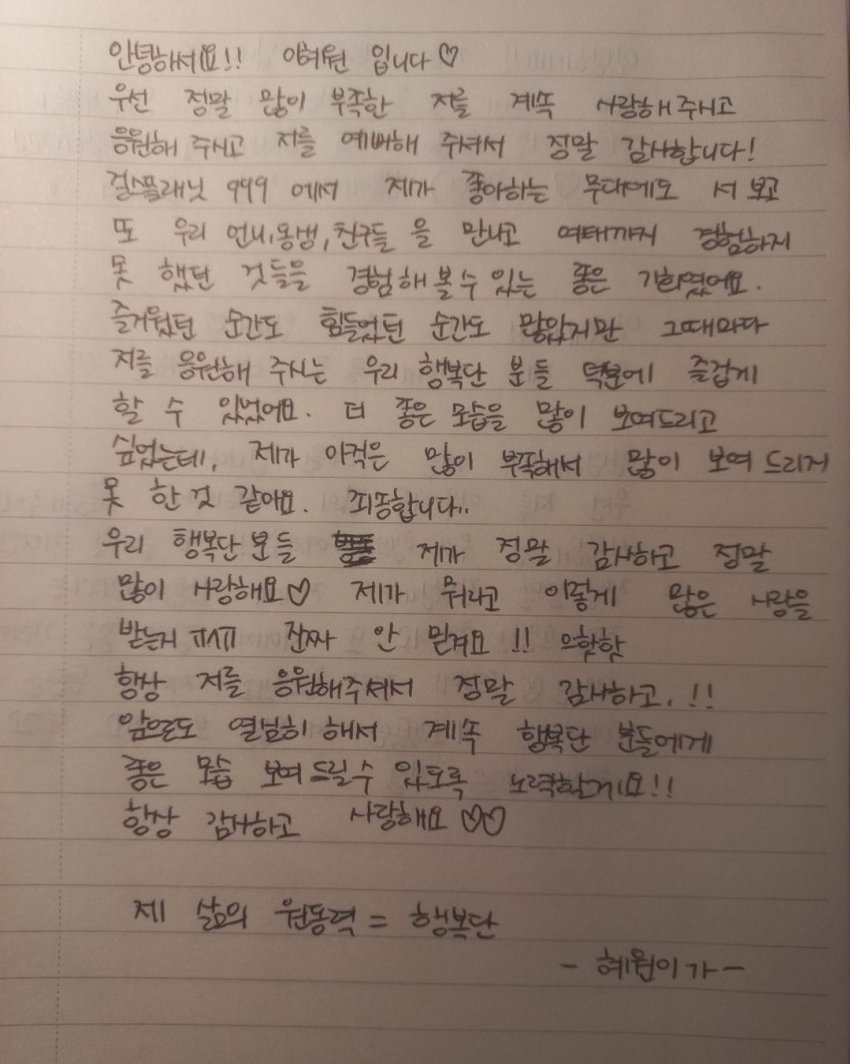 안녕하세요!! 이혜원 입니다♡
우선 정말 많이 부족한 저를 계속 사랑해 주시고
응원해 주시고 저를 예뻐해 주셔서 정말 감사합니다!
걸스플래닛 999 에서 제가 좋아하는 무대에도 서 보고
또 우리 언니,동생,친구들 을 만나고 여태까지 경험하지
못 했던 것들을 경험해 볼 수 있는 좋은 기회였어요.
즐거웠던 순간도 힘들었던 순간도 많았지만 그때마다
저를 응원해 주시는 우리 행복단 분들 덕분에 즐겁게
할 수 있었어요. 더 좋은 모습을 많이 보여드리고
싶었는데, 제가 아직은 많이 부족해서 많이 보여 드리지
못 한 것 같아요. 죄송합니다..
우리 행복단 분들 제가 정말 감사하고 정말
많이 사랑해요♡ 제가 뭐라고 이렇게 많은 사랑을
받는지 ㅠㅅㅠ 진짜 안 믿겨요 !! 으핫핫
항상 저를 응원해주셔서 정말 감사하고, !!
앞으로도 열심히 해서 계속 행복단 분들에게
좋은 모습 보여 드릴 수 있도록 노력할게요!!
항상 감사하고 사랑해요 ♡♡
제 삶의 원동력 = 행복단
- 혜원이가 -